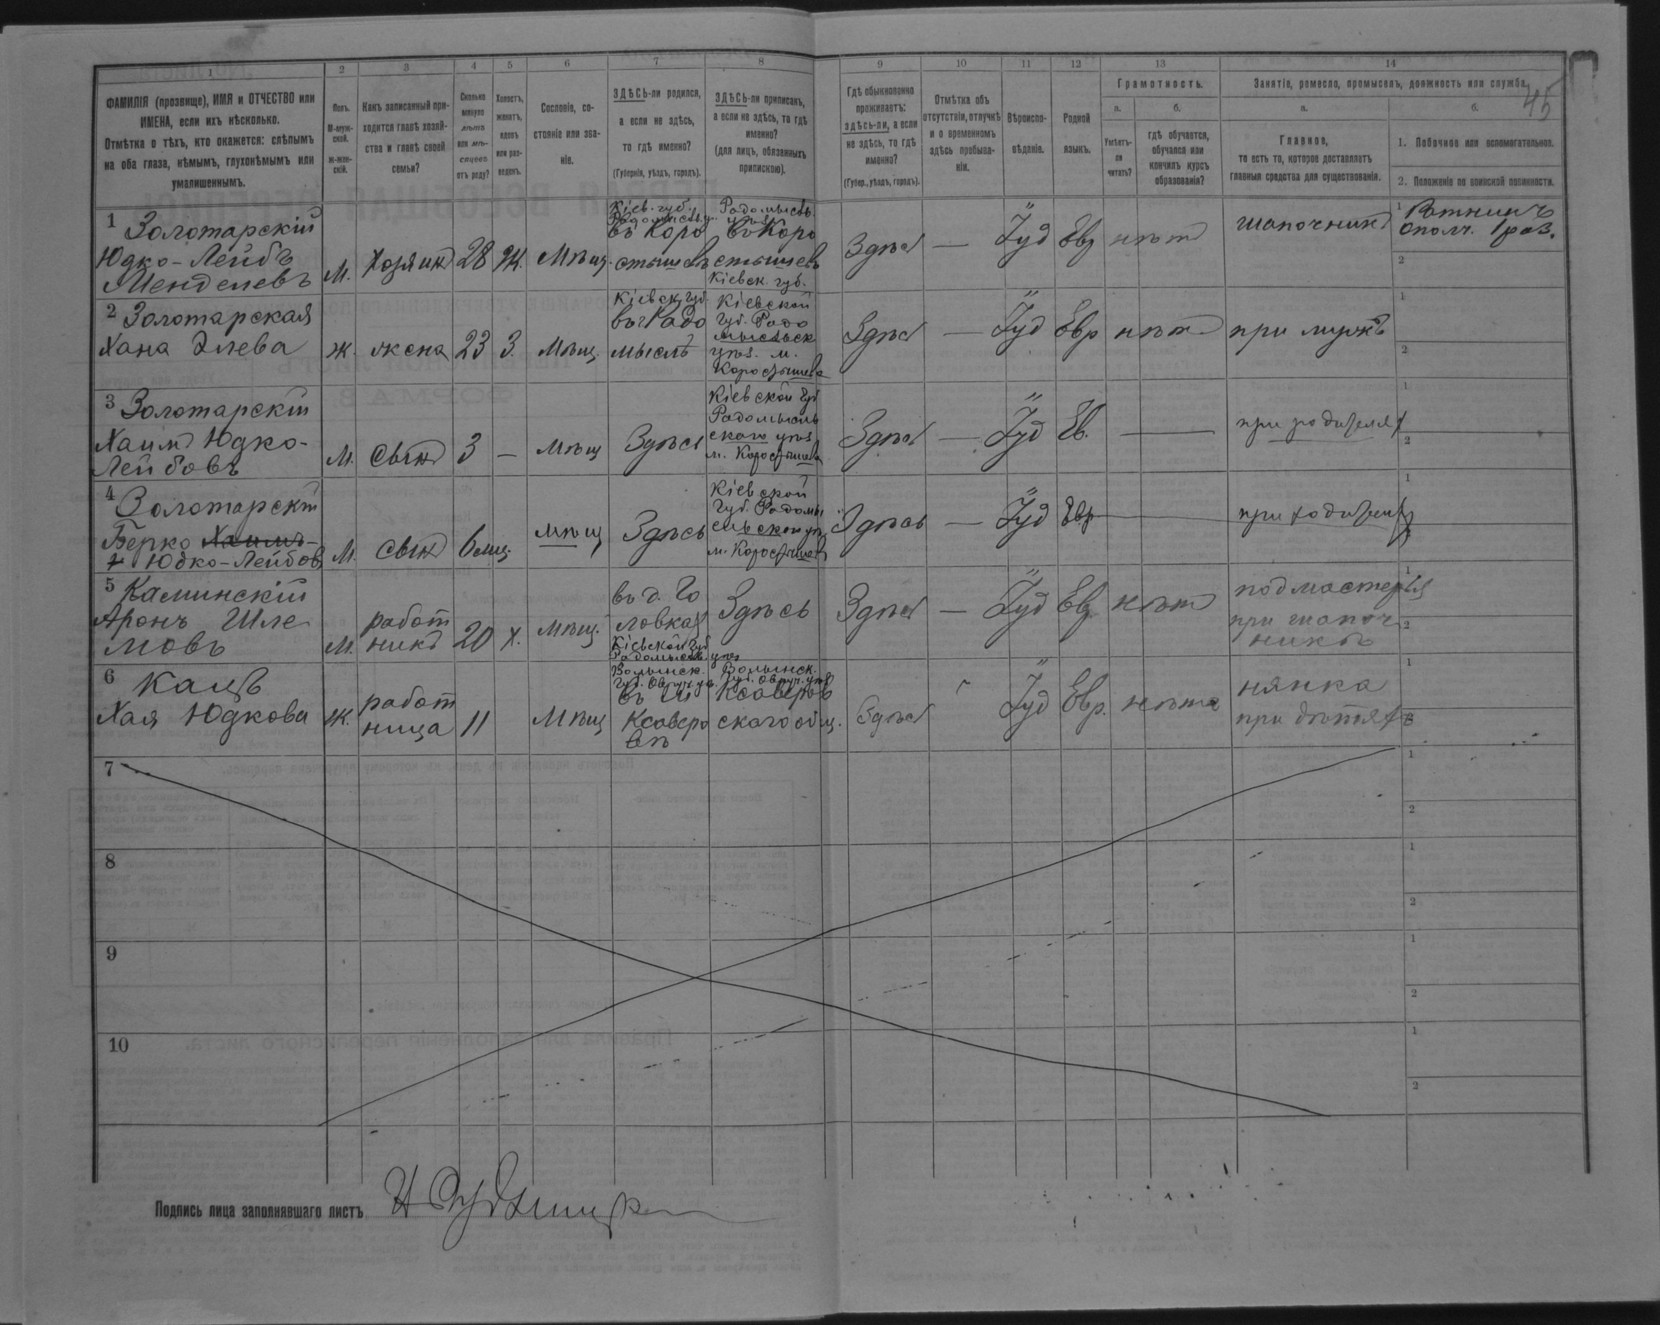 45
1 2 3 4 5 6 7 8 9 10 11 12 13 14
ФАМИЛІЯ (прозвище), ИМЯ и ОТЧЕСТВО или
ИМЕНА, если ихъ нѣсколько.
Отмѣтка о тѣхъ, кто окажется: слѣпымъ
на оба глаза, нѣмымъ, глухонѣмымъ или
умалишеннымъ.
Полъ.
М-муж-
ской.
Ж-жен-
скій.
Какъ записанный при-
ходится главѣ хозяй-
ства и главѣ своей
семьи?
Сколько
минуло
лѣтъ
или мѣ-
сяцевъ
отъ роду?
Холостъ,
женатъ,
вдовъ
или раз-
веденъ.
Сословіе, со-
стояніе или зва-
ніе.
ЗДѢСЬ-ли родился,
а если не здѣсь,
то гдѣ именно?
(Губернія, уѣздъ, городъ).
ЗДѢСЬ-ли приписанъ,
а если не здѣсь, то гдѣ
именно?
(для лицъ, обязанныхъ
припискою).
Гдѣ обыкновенно
проживаетъ:
здѣсь-ли, а если
не здѣсь, то гдѣ
именно?
(Губер., уѣздъ, городъ).
Отмѣтка объ
отсутствіи, отлучкѣ
и о временномъ
здѣсь пребыва-
ніи.
Вѣроиспо-
вѣданіе.
Родной
языкъ.
Грамотность.
а. б.
Умѣетъ-
ли
читать?
гдѣ обучается,
обучался или
кончилъ курсъ
образованія?
Занятіе, ремесло, промыселъ, должность или служба.
а. б.
Главное,
то есть то, которое доставляетъ
главныя средства для существованія.
1. Побочное или вспомогательное.
2. Положеніе по воинской повинности.
1 Золотарскій
Юдко-Лейбъ
Менделевъ
м. Хозяинъ 28 Ж. Мѣщ.
Кіев. губ.
Радомысль. у.
въ Коро
стышевѣ
Радомысль.
уѣз.
въ Коро
стышевѣ
Кіевск. губ.
Здѣсь — Іуд Евр нѣтъ шапочникъ
1 Ратникъ
ополч. 1 раз.
2
2 Золотарская
Хана Элева
ж. жена 23 З. Мѣщ.
Кіевск. губ.
въ г Радо
мыслѣ
Кіевской
Губ. Радо
мысльск
уѣз. м.
Коростышева
Здѣсь — Іуд Евр нѣтъ при мужѣ
1
2
3 Золотарскій
Хаимъ Юдко-
Лейбовъ
м. сынъ 3 — мѣщ Здѣсь
Кіевской Губ
Радомысль
скаго уѣз
м. Коростышева
Здѣсь — Іуд Ев. — при родителяхъ
1
2
4 Золотарскій
Берко Хаимъ-
Юдко-Лейбов
м. сынъ 6 мц. мѣщ Здѣсь
Кіевской
Губ. Радомы
сльской уѣ
м. Коростышев
Здѣсь — Іуд Евр — при родителях
1
5 Каминскій
Аронъ Шле
мовъ
м. работ
никъ 20 х. мѣщ.
въ д. Го
ловках
Кіевской Губ
Радомысль. уѣз
Здѣсь Здѣсь — Іуд Евр нѣтъ
подмастерья
при шапоч
никѣ
1
2
6 Кацъ
Хая Юдкова
ж. работ
ница 11 Мѣщ
Волынск.
Губ. Овруч. уѣ.
въ м
Ксаверо
вѣ
Волынск.
Губ. Овруч. уѣз
Ксаверов
скаго общ.
Здѣсь Іуд Евр. нѣтъ
нянка
при дѣтяхъ
1
7
1
2
8
1
2
9
1
2
10
1
2
Подпись лица заполнявшаго листъ